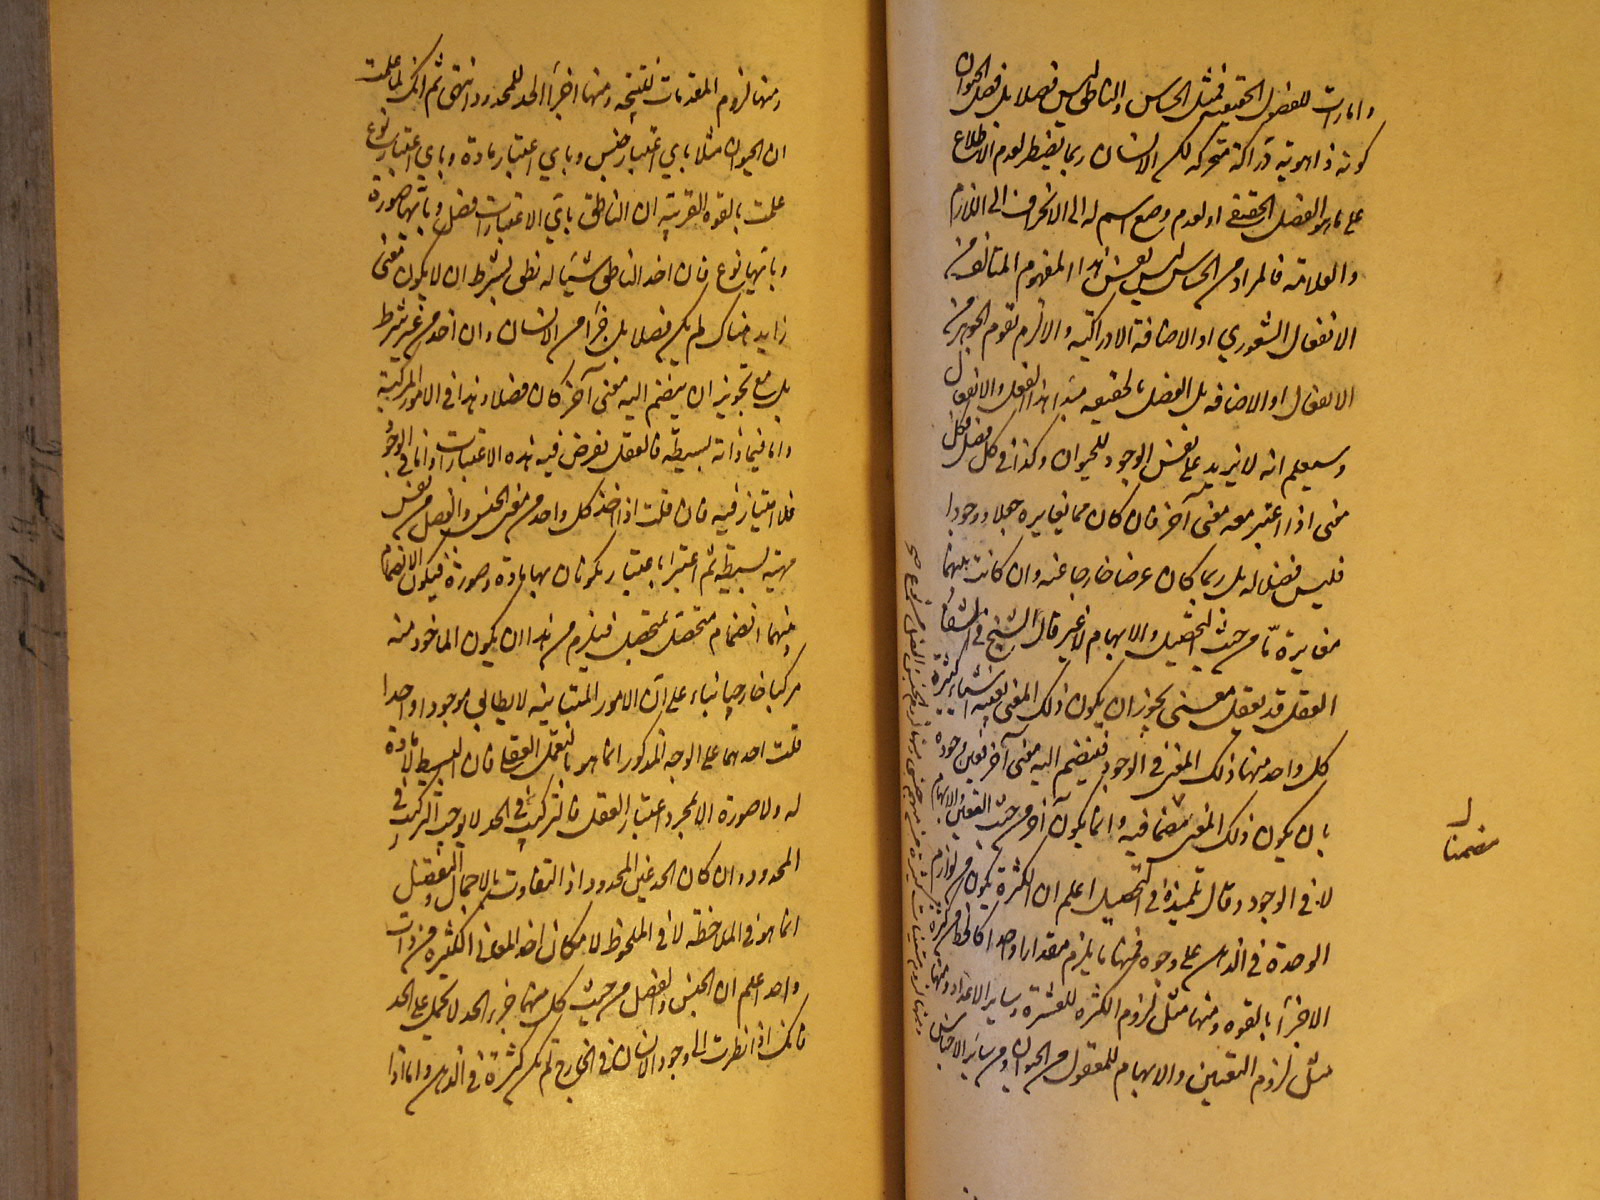 وامارات للفصول الحقيقيه فمثل الحساس والناطق ليس فصلا بل فصل الحيوان
كونه ذا هوية دراكة متحركه لكن الانسان ربما يضطر لعدم الاطلاع
على ما هو الفصل الحقيقي او لعدم وضع اسم له الى الانحراف الى اللازم
والعلامة فالمراد من الحساس ليس نفس هذا المفهوم المتالف من
الانفعال الشعوري او الاضافة الادراكية والا لزم تقوم الجوهر من
الانفعال او الاضافه بل الفصل بالحقيقه مبدا هذا الفعل والانفعال
وسيعلم انه لا يزيد على نفس الوجود للحيوان وكذا في كل فصل فكل
معنى اذا اعتبر معه معنى آخر فان كان مما يغايره جعلا ووجودا
فليس فصلا له بل ربما كان عرضا خارجا عنه وان كانت بينهما
مغايرة ما من حيث التحصيل والابهام لا غير قال الشيخ في الشفاء
العقل قد يعقل معنى يجوز ان يكون ذلك المعنى بعينه اشياء كثيرة
كل واحد منها ذلك المعنى في الوجود فينضم اليه معنى آخر تعين وجوده
بان يكون ذلك المعنى مضمنا فيه وانما يكون آخر من حيث التعين والابهام
لا في الوجود وقال تلميذه في التحصيل اعلم ان الكثرة يكون من لوازم
الوحدة في الذهن على وجوه فمنها ما يلزم مقدارا واحدا كالخط من كثرة
الاجزاء بالقوه ومنها مثل لزوم الكثره للعشرة وساير الاعداد ومنها
مثل لزوم التعين والابهام للمعقول من الحيوان ومن ساير الاجناس
مضمنا
ومنها لزوم المقدمات للنتيجه ومنها اجزاء الحد للمحدود انتهى ثم انك لما علمت
ان الحيوان مثلا باي اعتبار جنس وباي اعتبار مادة وباي اعتبار نوع
علمت بالقوه القريبه ان الناطق باي الاعتبارات فصل وبايها صورة
وبايها نوع فان اخذ الناطق شيئا له نطق بشرط ان لا يكون معنى
زايد هناك لم يكن فصلا بل جزءا من الانسان وان اخذ من غير شرط
بل مع تجويز ان ينضم اليه معنى آخر كان فصلا وهذا في الامور المركبة
واما فيما ذاته بسيطة فالعقل يفرض فيه هذه الاعتبارات واما في الوجود
فلا امتياز فيه فان قلت اذا اخذ كل واحد من معنى الجنس والفصل من نفس
مهية بسيطة ثم اعتبرا باعتبار يكونان بها مادة وصورة فيكون الانضمام
بينهما انضمام متحصل بمتحصل فيلزم من هذا ان يكون الماخوذ منه
مركبا خارجيا بناء على ان الامور المتباينه لا يطابق موجودا واحدا
قلت اخذهما على الوجه المذكور انما هو بتعمل العقل فان البسيط لا مادة
له ولا صورة الا بمجرد اعتبار العقل فالتركيب في الحد لا يوجب التركيب في
المحدود وان كان الحد عين المحدود اذ التفاوت بالاجمال والتفصيل
انما هو في الملاحظه لا في الملحوظ لامكان اخذ المعاني الكثيره من ذات
واحد اعلم ان الجنس والفصل من حيث كل منهما جزء الحد لا يحمل على الحد
فانك اذا نظرت الى وجود الانسان في الخارج لم يكن كثرة في الذهن واما اذا